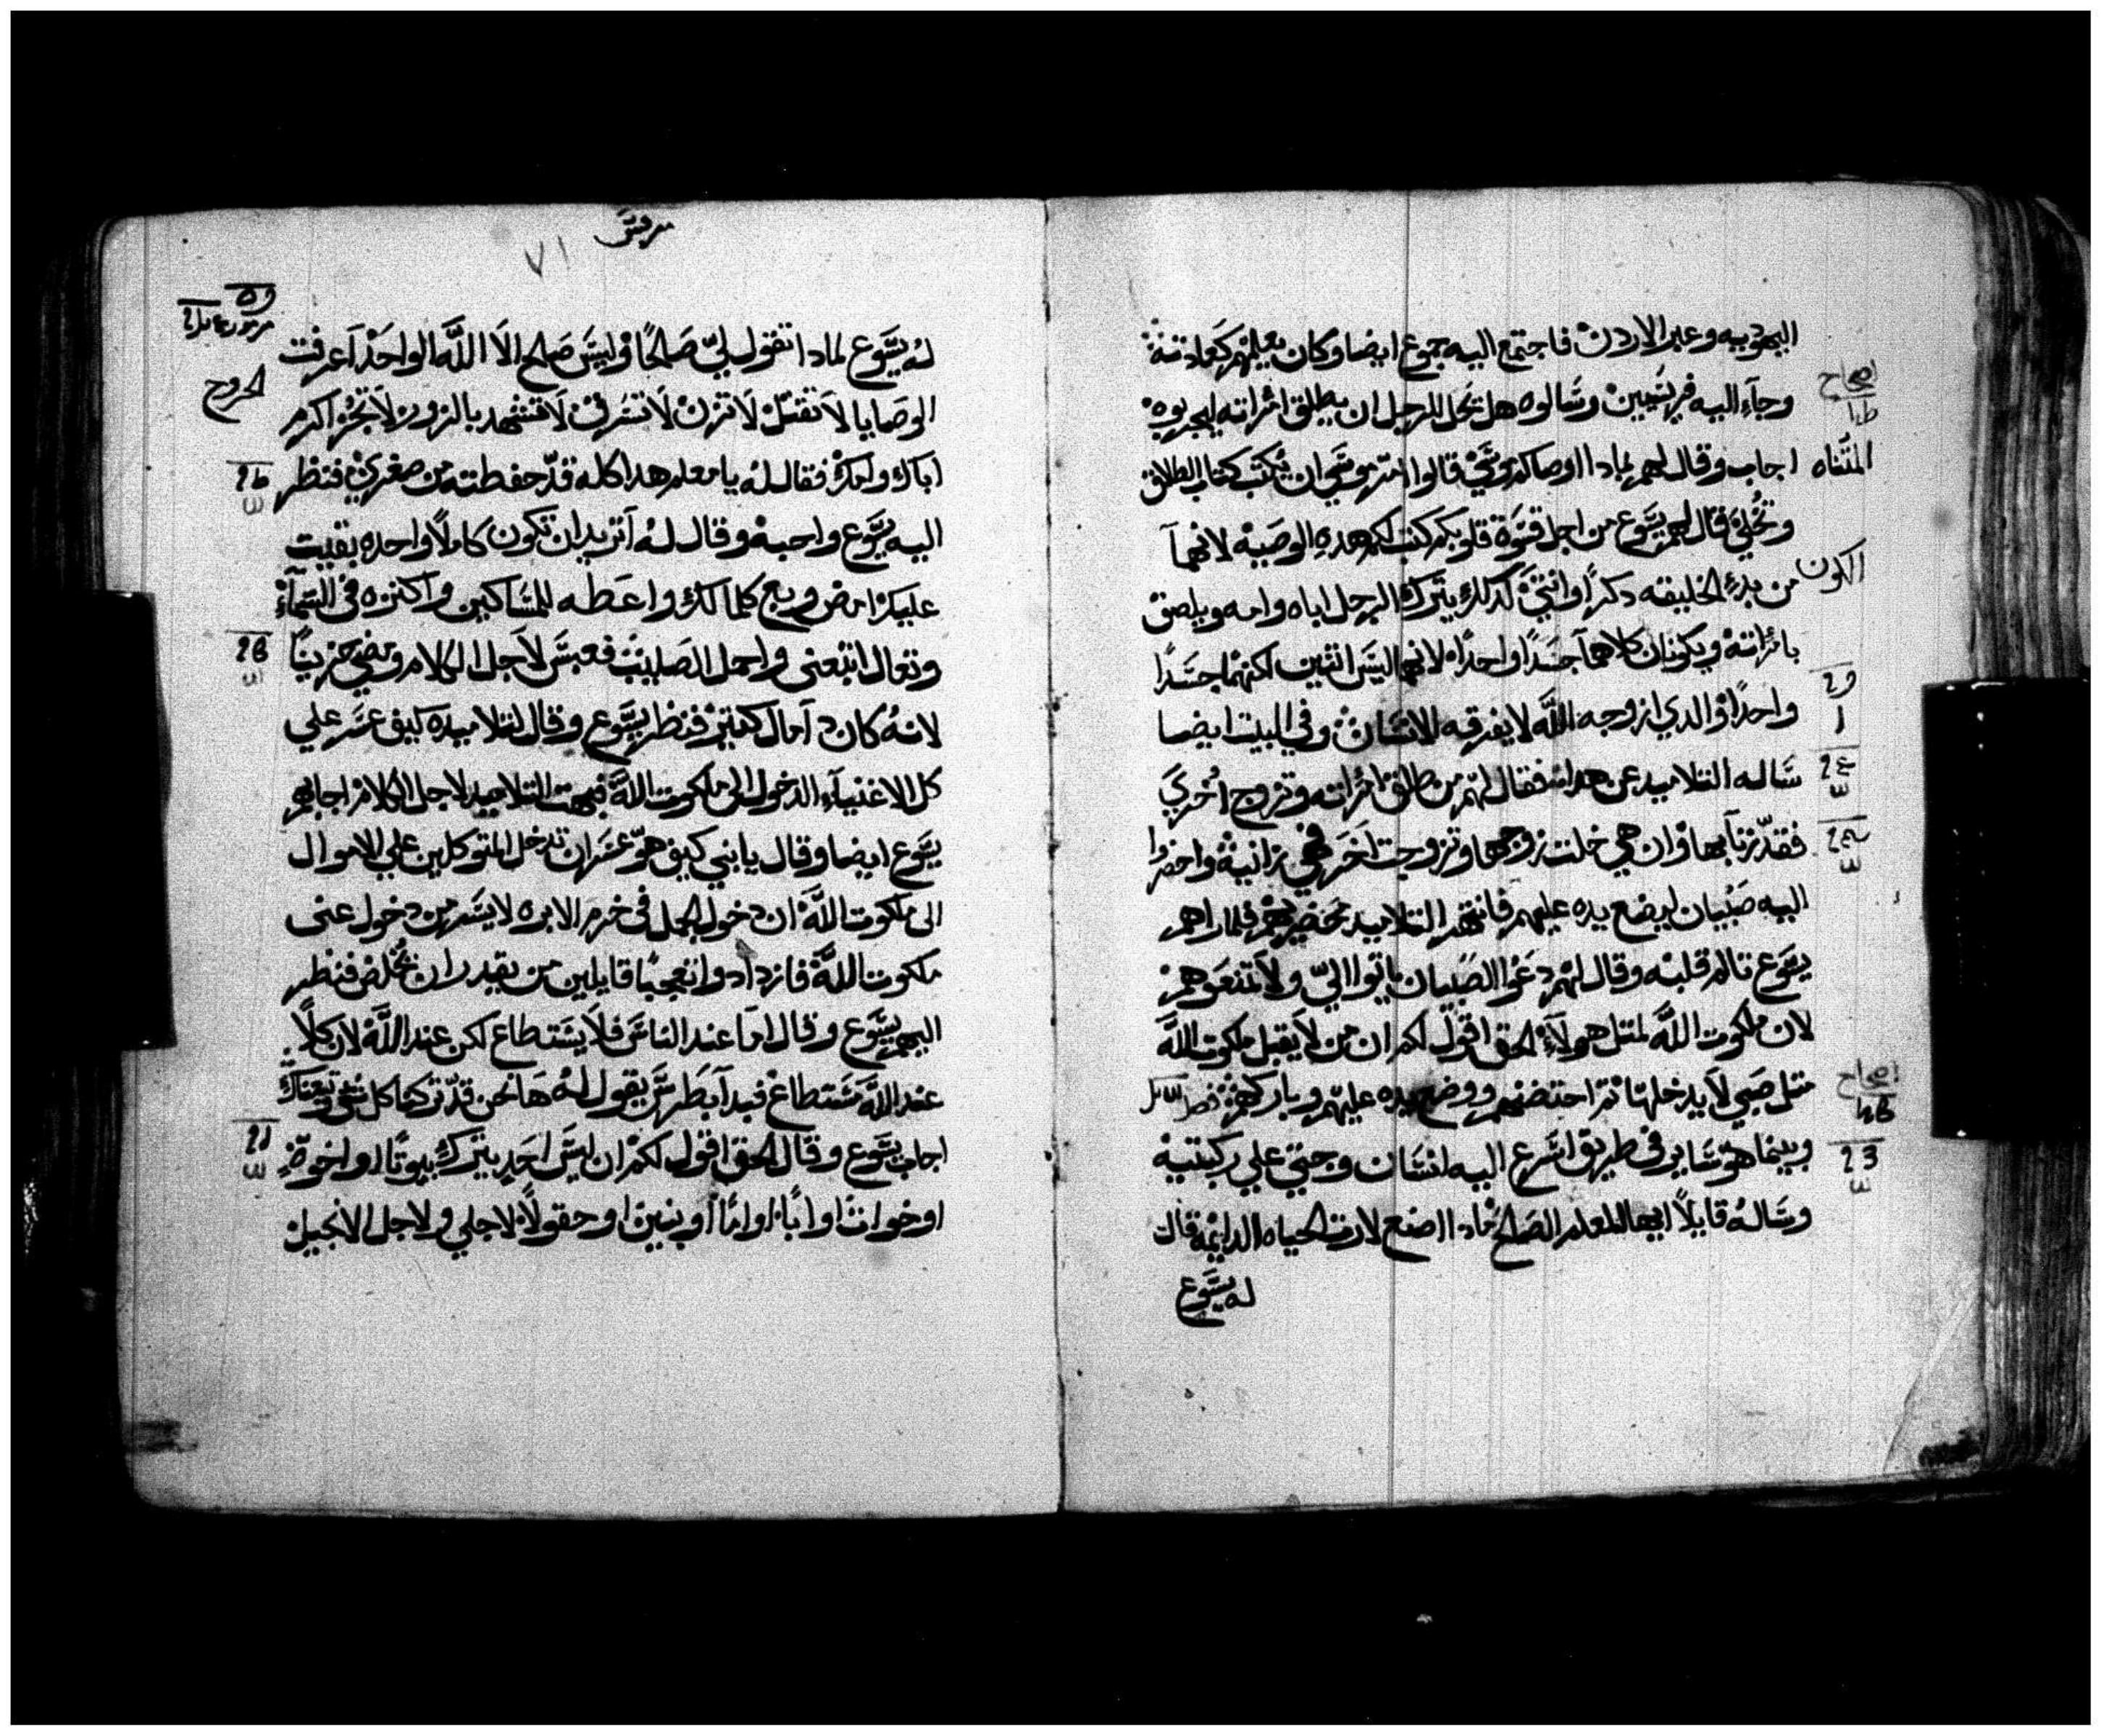 اليهوديه وعبر الاردن فاجتمع اليه جموع ايضا وكان يعلمهم كعادته
اصحاح
وجآء اليه فريسيين وسالوه هل تحل للرجل ان يطلق امراته ليجربوه
المثناه
اجاب وقال لهم لمادا اوصاكم موسي قالوا موسي ان نكتب كتاب الطلاق
وتخلي قال لهم يسوع من اجل قسوة قلوبكم كتب لكم هده الوصيه لانهما
الكون
من بدء الخليقه دكرا وانثي كدلك يترك الرجل اباه وامه ويلصق
بامراته ويكونان كلاهما جسدا واحدا لانهما ليس اثنين لكنهما جسدا
واحدا والدي ازوجه الله لا يفرقه الانسان وفي البيت ايضا
ساله التلاميد عن هدا فقال لهم من طلق امراته وتزوج اخري
فقد زنا بها وان هي خلت زوجها وتزوجت اخر فهي زانيه واحضروا
اليه صبيان ليضع يده عليهم فانتهر التلاميد محضريهم فلما راهم
يسوع تالم قلبه وقال لهم دعوا الصبيان ياتوا الي ولا تمنعوهم
لان ملكوت الله لمثل هولآء الحق اقول لكم ان من لا يقبل ملكوت الله
اصحاح
مثل صبي لا يدخلها ثم احتضنهم ووضع يده عليهم وباركهم
وبينما هو ساير في طريق اسرع اليه انسان وجثي علي ركبتيه
وساله قايلا ايها المعلم الصالح مادا اصنع لارث الحياه الدايمه قال
له يسوع
مرقس
٧١
له يسوع لمادا تقول لي صالحا وليس صالح الا الله الواحد اعرفت
الخروج
الوصايا لا تقتل لا تزن لا تسرق لا تشهد بالزور لا تجر اكرم
اباك وامك فقال له يا معلم هدا كله قد حفطته من صغري فنظر
اليه يسوع واحبه وقال له اتريد ان تكون كاملا واحده بقيت
عليك امض وبع كلما لك واعطه للمساكين واكنزه في السمآء
وتعال اتبعني واحمل الصليب فعبس لاجل الكلام ومضي حزينا
لانه كان دا مال كثير فنظر يسوع وقال لتلاميده كيف عسر علي
كل الاغنيآء الدخول الى ملكوت الله فبهت التلاميد لاجل الكلام اجابهم
يسوع ايضا وقال يا بني كيف هو عسر ان تدخل المتوكلين علي الاموال
الى ملكوت الله ان دخول الجمل في خرم الابره لايسر من دخول غنى
ملكوت الله فازدادوا تعجبا قايلين من يقدر ان يخلص فنظر
اليهم يسوع وقال اما عند الناس فلا يستطاع لكن عند الله لان كلا
عند الله مستطاع فبدا بطرس يقول له ها نحن قد تركنا كل شي وتبعناك
اجاب يسوع وقال الحق اقول لكم ان ليس احد يترك بيوتا او اخوة
او خوات او ابا او اما او بنين او حقولا لاجلي ولاجل الانجيل